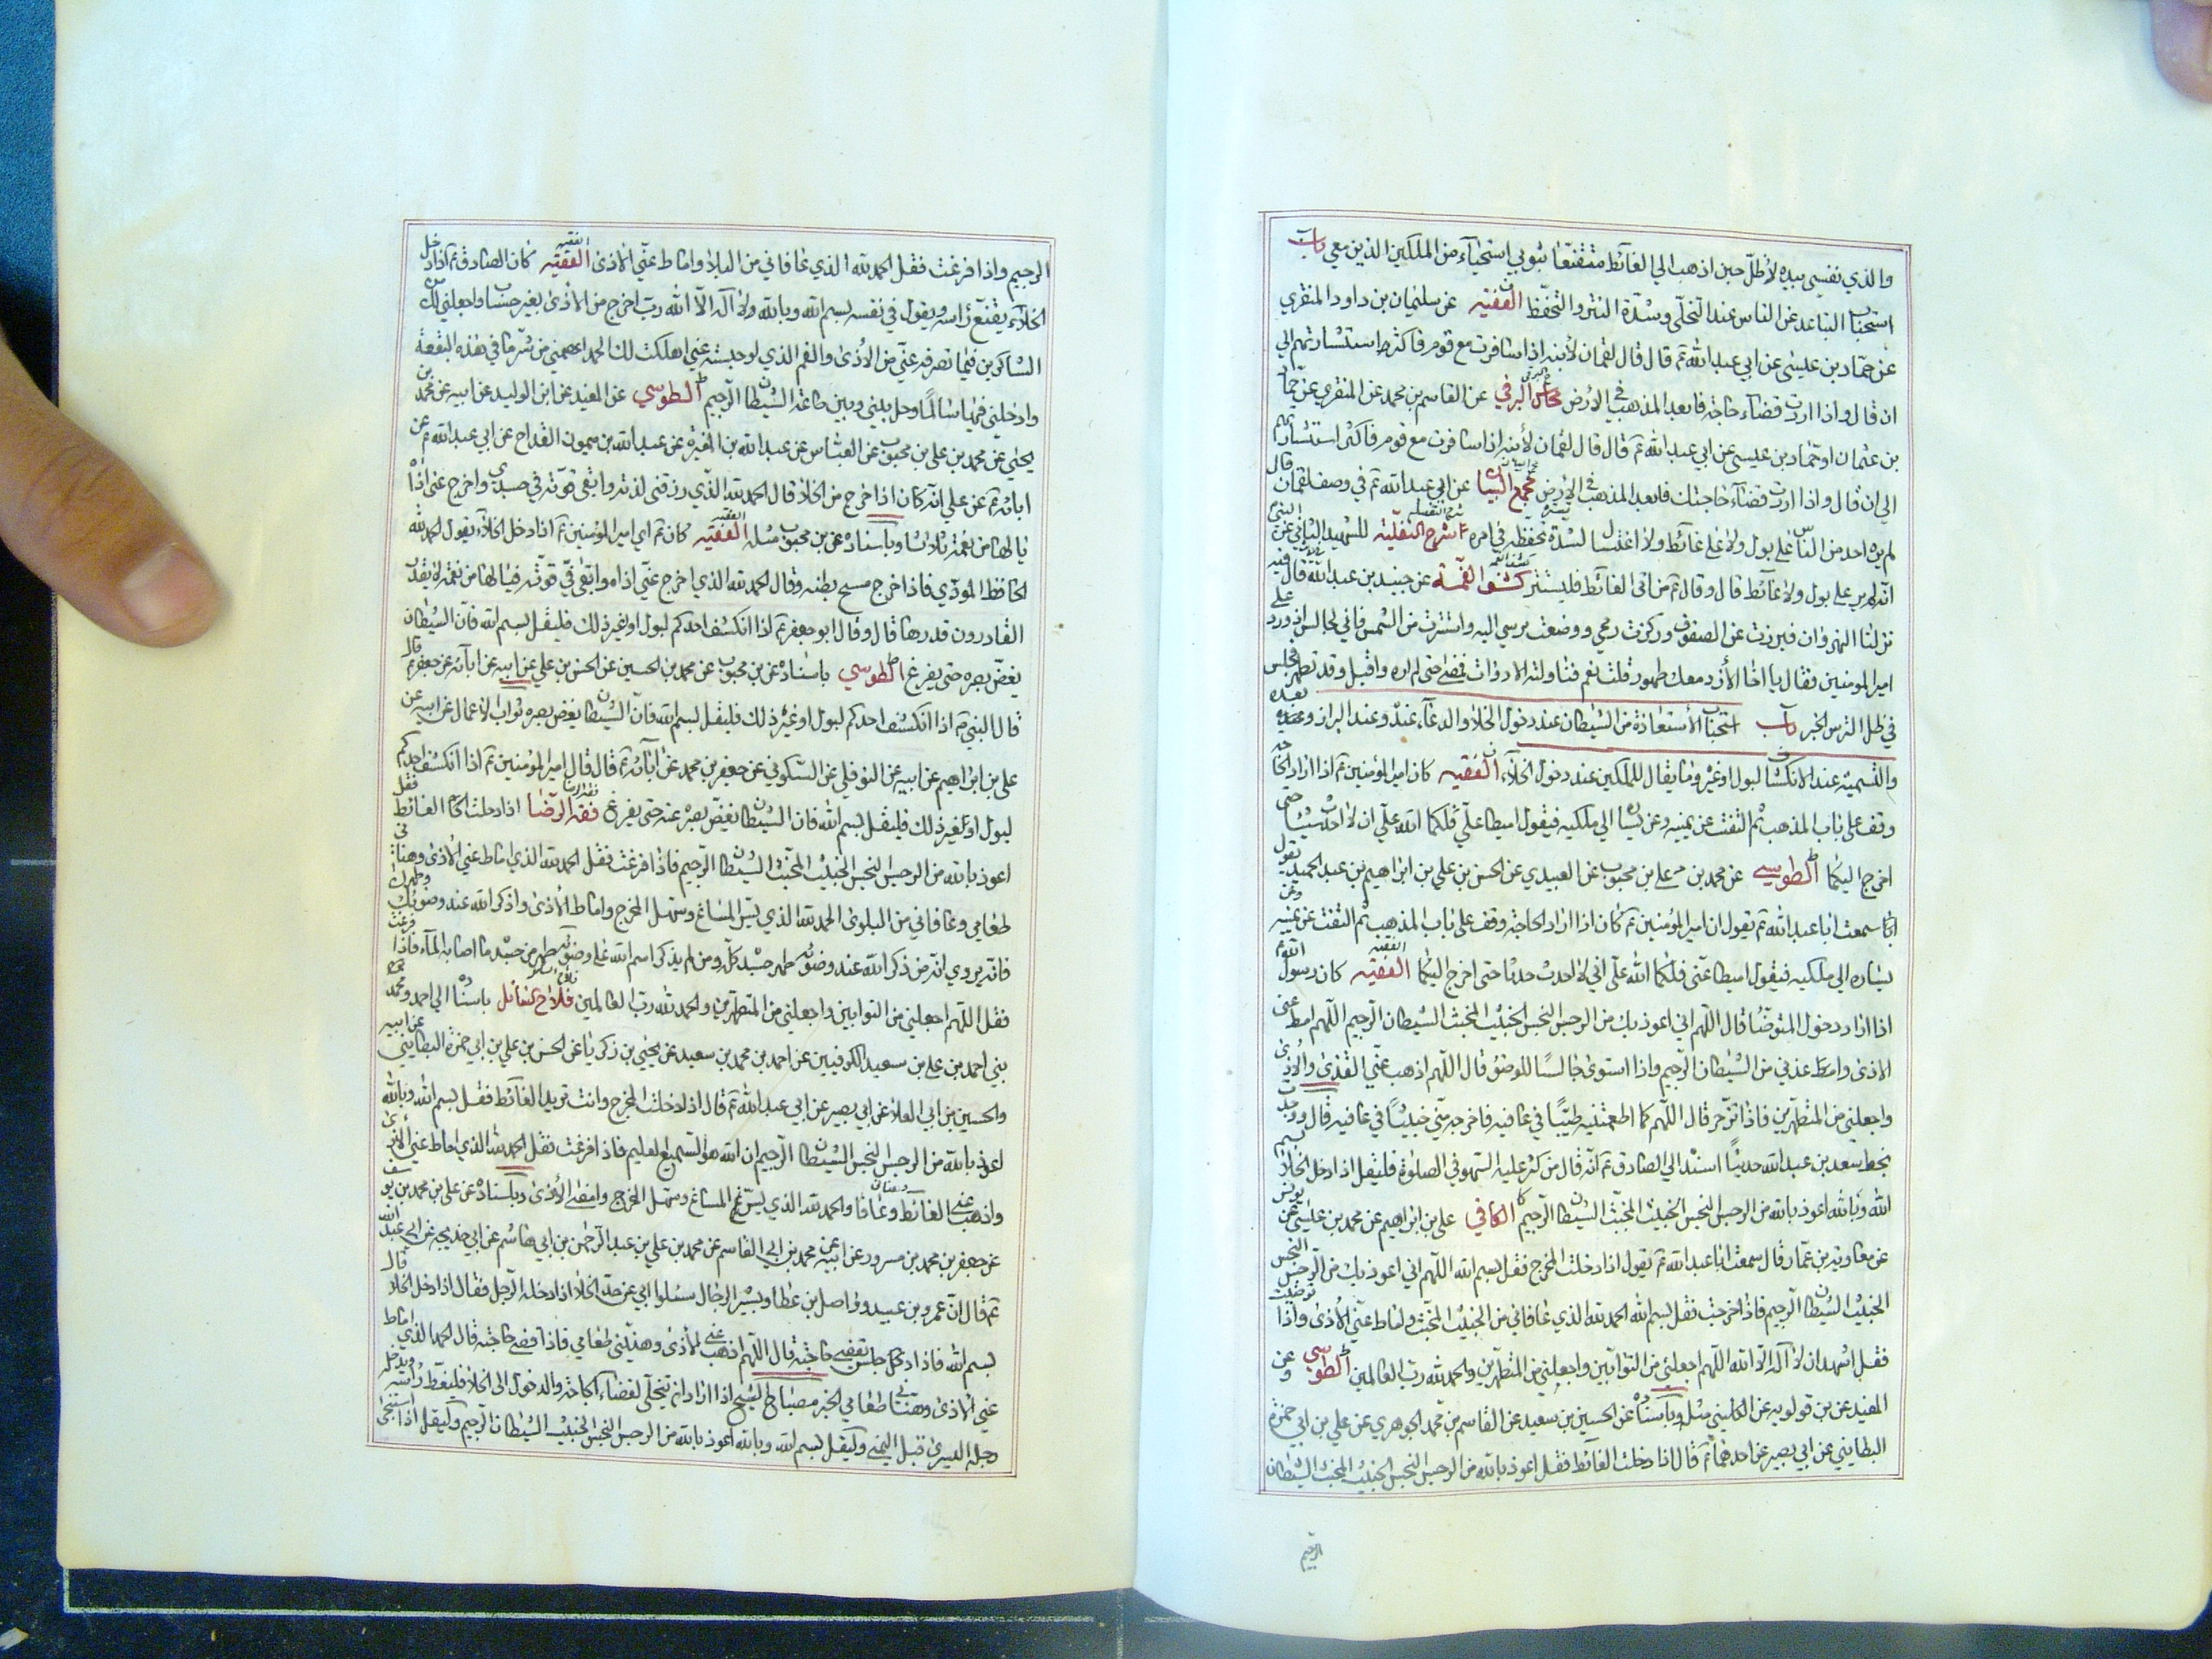 والذي نفسي بيده لأظل حين اذهب الى الغائط متقنعا بثوبي استحياء من الملكين الذين معي باب
استحباب التباعد عن الناس عند التخلي وشدة التستر والتحفظ الفقيه عن سليمان بن داود المنقري
عن حماد بن عيسى عن ابي عبد الله ع قال قال لقمان لابنه اذا سافرت مع قوم فاكثر استشارتهم الى
ان قال واذا اردت قضاء حاجة فابعد المذهب في الارض محاسن البرقي عن القاسم بن محمد عن المنقري عن حماد
بن عثمان او حماد بن عيسى عن ابي عبد الله ع قال قال لقمان لأبنه اذا سافرت مع قوم فاكثر استشارتهم
الى ان قال واذا اردت قضاء حاجتك فابعد المذهب في الارض مجمع البيان عن ابي عبد الله ع في وصف لقمان قال
لم يره احد من الناس على بول ولا على غائط ولا اغتسال لشدة تستره وتحفظه في امره شرح النفلية للشهيد الثاني عن النبي
انه لم ير على بول ولا غائط قال وقال ع من اتى الغائط فليستتر كشف الغمة عن جنيد بن عبد الله قال
نزلنا النهروان فبرزت عن الصفوف وركزت رمحي ووضعت ترسي اليه واستترت من الشمس فاني لجالس اذ ورد علي
امير المؤمنين فقال يا اخا الأزد معك طهور قلت نعم فناولته الاداوة فمضى حتى لم اره واقبل وقد تطهر فجلس
في ظل الترس الخبر باب استحباب الأستعاذة من الشيطان عند دخول الخلاء والدعاء عنده وعند البراز وبعده
والتسمية عند الانكشاف لبول او غيره وما يقال للملكين عند دخول الخلاء الفقيه كان امير المؤمنين ع اذا اراد الحاجة
وقف على باب المذهب ثم التفت عن يمينه وعن يساره الى ملكيه فيقول اميطا عني فلكما الله علي ان لا احدث شيئا حتى
اخرج اليكما الطوسي عن محمد بن علي بن محبوب عن العبيدي عن الحسن بن علي بن ابراهيم بن عبد الحميد يقول
سمعت ابا عبد الله ع يقول ان امير المؤمنين ع كان اذا اراد الحاجة وقف على باب المذهب ثم التفت عن يمينه وعن
يساره الى ملكيه فيقول اميطا عني فلكما الله علي اني لا احدث حدثا حتى اخرج اليكما الفقيه كان رسول الله
اذا اراد دخول المتوضأ قال اللهم اني اعوذ بك من الرجس النجس الخبيث المخبث الشيطان الرجيم اللهم امط عني
الاذى واعذني من الشيطان الرجيم واذا استوى جالسا للوضوء قال اللهم اذهب عني القذى والاذى
واجعلني من المتطهرين فاذا تزحر قال اللهم كما اطعمتنيه طيبا في عافيه فاخرجه مني خبيثا في عافيه قال ووجدت
بخط سعد بن عبد الله حديثا اسنده الى الصادق ع انه قال من كثر عليه السهو في الصلوة فليقل اذا دخل الخلاء بسم
الله وبالله اعوذ بالله من الرجس النجس الخبيث المخبث الشيطان الرجيم الكافي علي بن ابراهيم عن محمد بن عيسى عن يونس
عن معاوية بن عمار قال سمعت ابا عبد الله ع يقول اذا دخلت المخرج فقل بسم الله اللهم اني اعوذ بك من الرجس النجس
الخبيث الشيطان الرجيم فاذا خرجت فقل بسم الله الحمد لله الذي عافاني من الخبيث المخبث واماط عني الأذى واذا توضيت
فقل اشهد ان لا اله الا الله اللهم اجعلني من التوابين واجعلني من المتطهرين والحمد لله رب العالمين الطوسي عن
المفيد عن بن قولويه عن الكليني مثله وباسناده عن الحسين بن سعيد عن القاسم بن محمد الجوهري عن علي بن ابي حمزة
البطايني عن ابي بصير عن احدهما ع قال اذا دخلت الغائط فقل اعوذ بالله من الرجس النجس الخبيث المخبث الشيطان
الرجيم
الرجيم واذا فرغت فقل الحمد لله الذي عافاني من البلاء واماط عني الاذى الفقيه كان الصادق ع اذا دخل
الخلاء يقنع رأسه ويقول في نفسه بسم الله وبالله ولا اله الا الله رب اخرج مني الأذى بغير حساب واجعلني لك من
الشاكرين فيما تصرفه عني من الأذى والغم الذي لو حبسته عني اهلكت لك الحمد اعصمني من شر ما في هذه البقعة
وادخلني فيها سالما وحل بيني وبين طاعة الشيطان الرجيم الطوسي عن المفيد عن ابن الوليد عن ابيه عن محمد بن
يحيى عن محمد بن علي بن محبوب عن العباس عن عبد الله بن المغيرة عن عبد الله بن ميمون القداح عن ابي عبد الله ع عن
ابائه ع عن علي انه كان اذا خرج من الخلاء قال الحمد لله الذي رزقني لذته وابقى قوته في جسدي واخرج عني اذاه
يا لها من نعمة ثلاثا وباسناده عن بن محبوب مثله الفقيه كان ع اي امير المؤمنين ع اذا دخل الخلاء يقول الحمد لله
الحافظ المؤدي فاذا خرج مسح بطنه وقال الحمد لله الذي اخرج عني اذاه وابقى في قوته فيا لها من نعمة لا يقدر
القادرون قدرها قال وقال ابو جعفر ع اذا انكشف احدكم لبول او لغير ذلك فليقل بسم الله فان الشيطان
يغض بصره حتى يفرغ الطوسي باسناده عن بن محبوب عن محمد بن الحسين عن الحسن بن علي عن ابيه عن ابائه عن جعفر ع قال
قال النبي ص اذا انكشف احدكم لبول او غير ذلك فليقل بسم الله فان الشيطان يغض بصره ثواب الاعمال عن ابيه عن
علي بن ابراهيم عن ابيه عن النوفلي عن السكوني عن جعفر بن محمد عن ابائه ع قال قال امير المؤمنين ع اذا انكشف احدكم
لبول او لغير ذلك فليقل بسم الله فان الشيطان يغض بصره عنه حتى يفرغ فقه الرضا اذا دخلت الغائط فقل
اعوذ بالله من الرجس النجس الخبيث المخبث الشيطان الرجيم فاذا فرغت فقل الحمد لله الذي اماط عني الأذى وهنأني
طعامي وعافاني من البلوى الحمد لله الذي يسر المساغ وسهل المخرج واماط الأذى واذكر الله عند وضوئك وطهرك
فانه يروى انه من ذكر الله عند وضوئه طهر جسده كله ومن لم يذكر اسم الله على وضوئه طهر من جسده ما اصابه الماء فاذا فرغت
فقل اللهم اجعلني من التوابين واجعلني من المتطهرين والحمد لله رب العالمين فلاح السائل باسناده الى احمد ومحمد
بني احمد بن علي بن سعيد الكوفيين عن احمد بن محمد بن سعيد عن يحيى بن زكريا عن الحسن بن علي بن ابي حمزة البطايني عن ابيه
والحسين بن ابي العلاء عن ابي بصير عن ابي عبد الله ع قال اذا دخلت المخرج وانت تريد الغائط فقل بسم الله وبالله
اعوذ بالله من الرجس النجس الشيطان الرجيم ان الله هو السميع العليم فاذا فرغت فقل الحمد لله الذي اماط عني الأذى
واذهب عني الغائط وعافاني والحمد لله الذي يسر المساغ وسهل المخرج وامضى الأذى وباسناده عن علي بن محمد بن يوسف
عن جعفر بن محمد بن مسرور عن ابيه عن محمد بن ابي القاسم عن محمد بن علي بن عبد الرحمن بن ابي هاشم عن ابي خديجه عن ابي عبد الله
ع قال ان عمرو بن عبيد وواصل بن عطا وبشير الرحال سئلوا ابي عن حد الخلاء اذا دخله الرجل فقال اذا دخل الخلاء قال
بسم الله فاذا جلس يقضي حاجته قال اللهم اذهب عني الأذى وهنيني طعامي فاذا قضى حاجته قال الحمد لله الذي اماط
عني الأذى وهناني طعامي الخبر مصباح الشيخ اذا اراد ان يتخلى لقضاء الحاجة والدخول الى الخلاء فليغط رأسه ويدخل
رجله اليسرى قبل اليمنى وليقل بسم الله وبالله اعوذ بالله من الرجس النجس الخبيث الشيطان الرجيم وليقل اذا استنجى